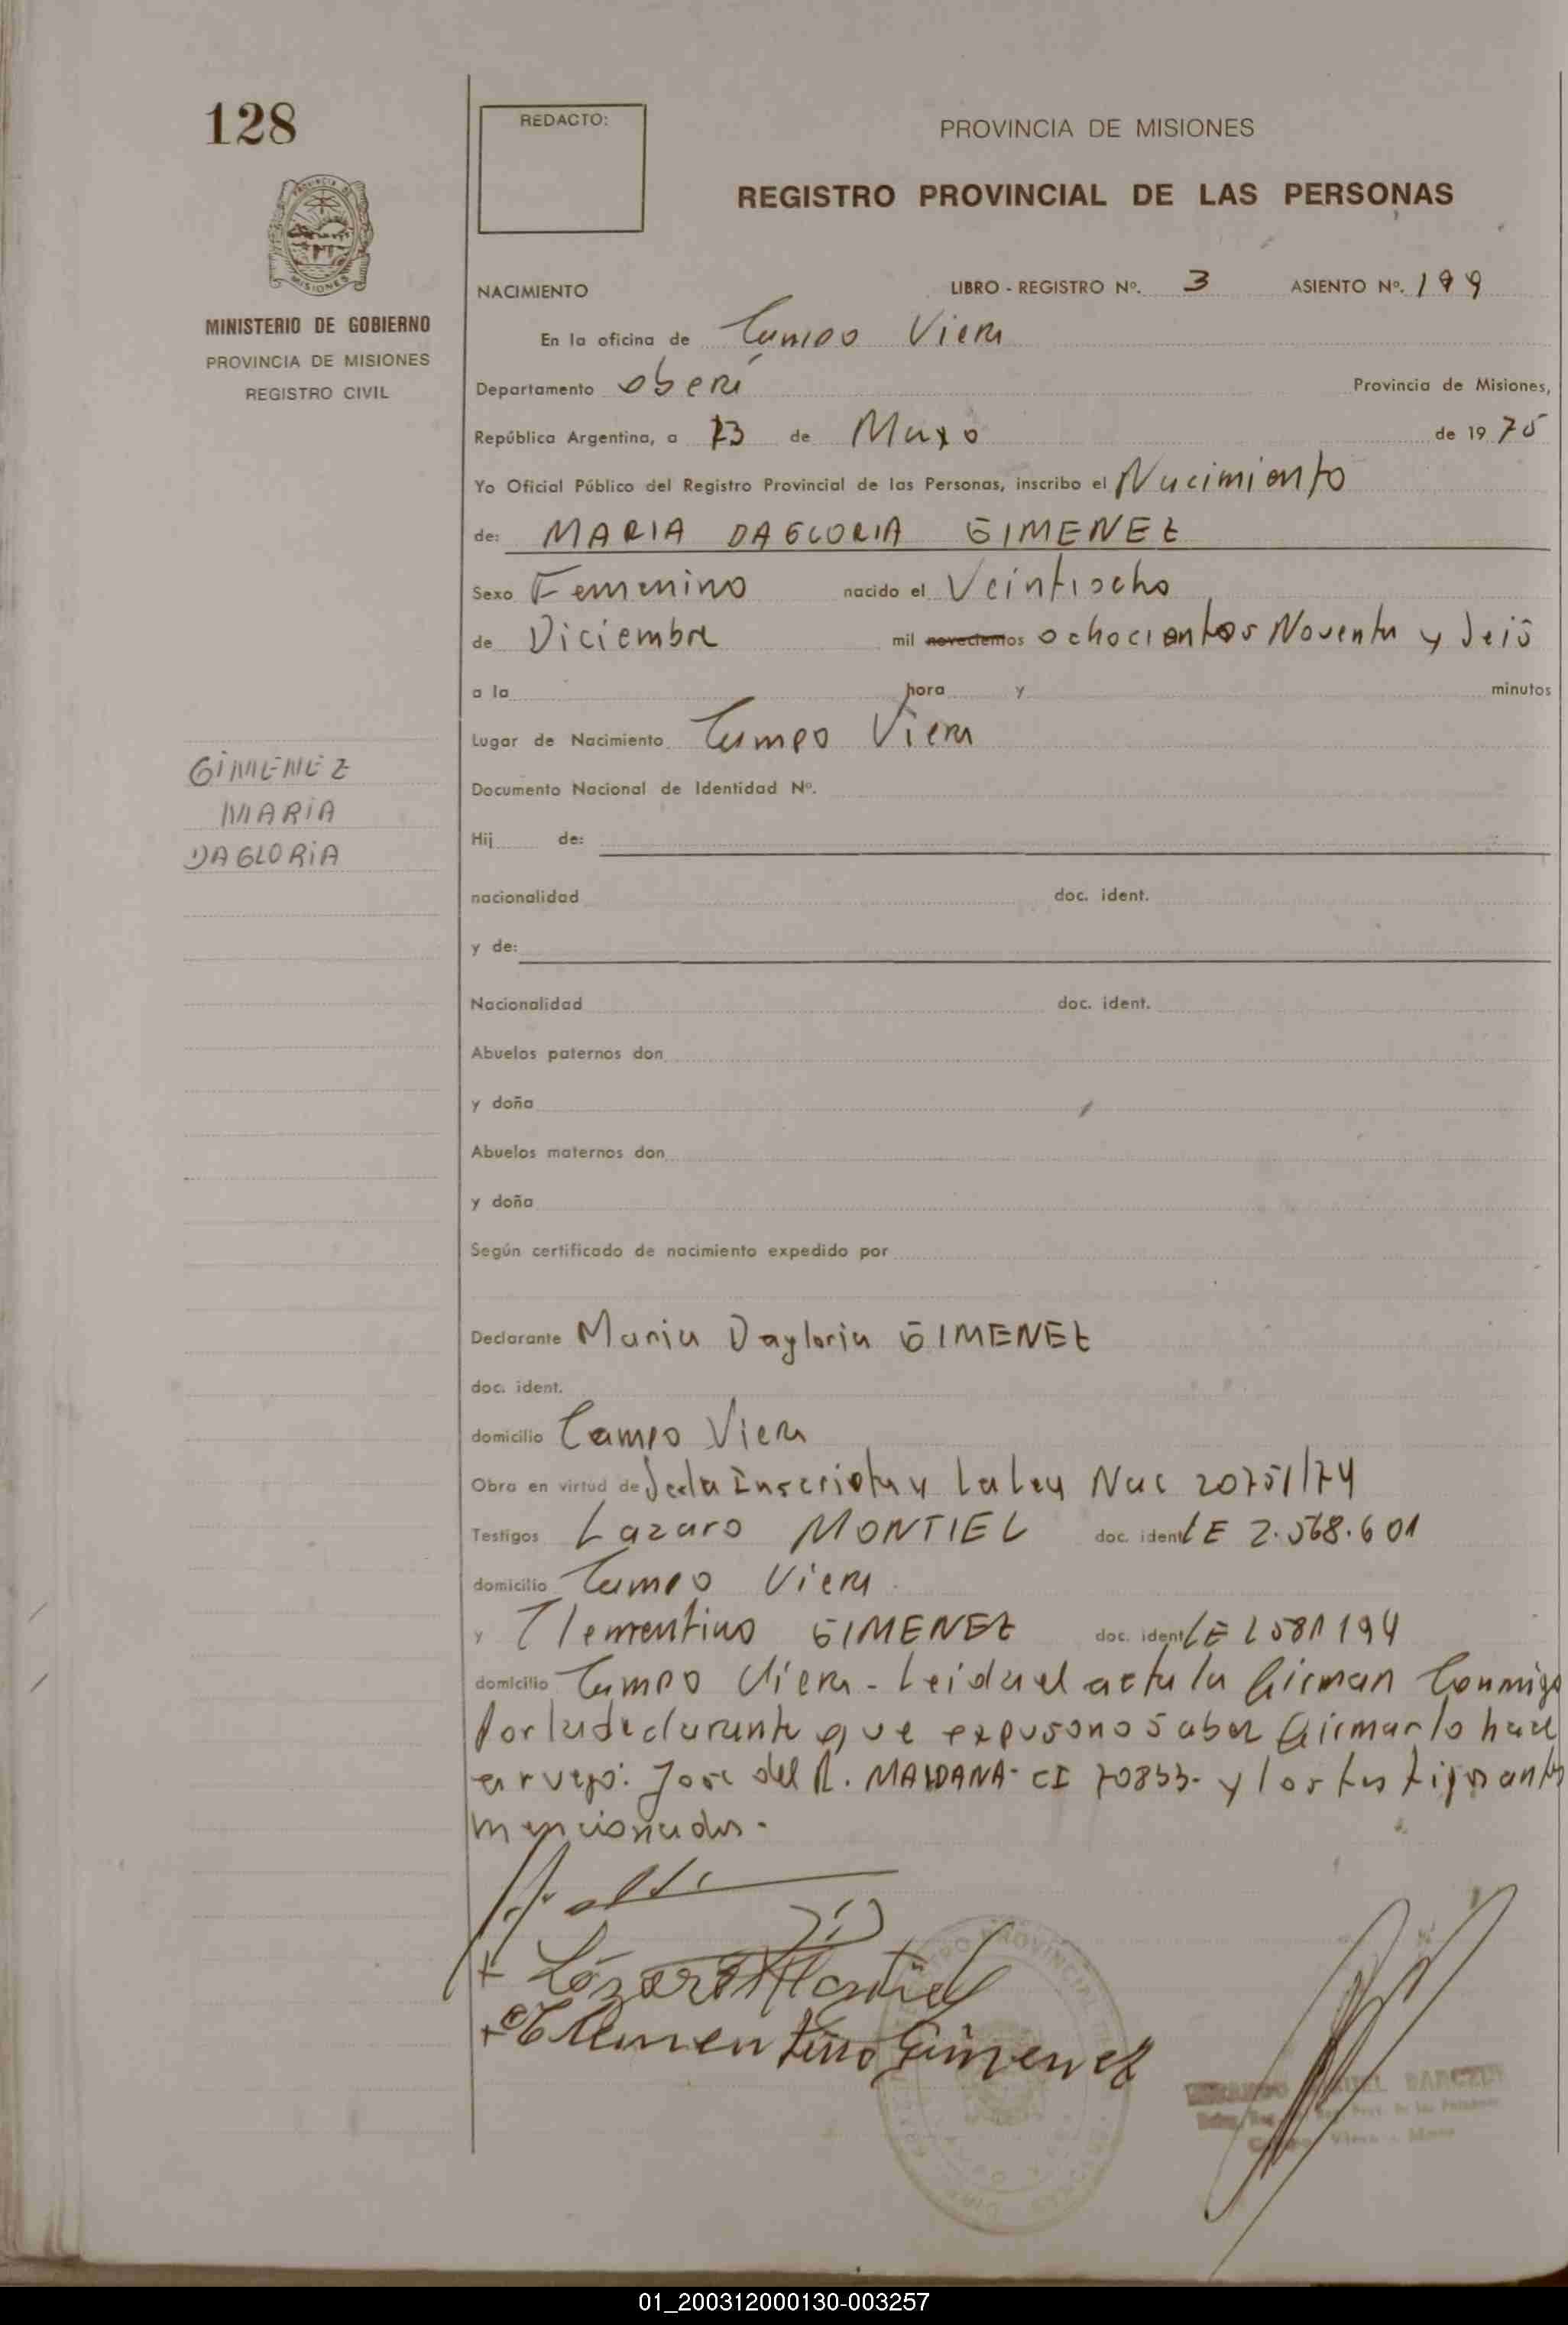 128
REDACTO:
PROVINCIA DE MISIONES
REGISTRO PROVINCIAL DE LAS PERSONAS
MINISTERIO DE GOBIERNO
PROVINCIA DE MISIONES
REGISTRO CIVIL
NACIMIENTO LIBRO - REGISTRO Nº. 3 ASIENTO Nº. 199
En la oficina de Campo Viera
Departamento oberá Provincia de Misiones,
República Argentina, a 13 de Mayo de 1975
Yo Oficial Público del Registro Provincial de las Personas, inscribo el Nacimiento
de: MARIA DAGLORIA GIMENEZ
Sexo Femenino nacido el Veintiocho
de Diciembre mil novecientos ochocientos Noventa y Seis
a la hora y minutos
Lugar de Nacimiento Campo Viera
GIMENEZ
MARIA
DAGLORIA
Documento Nacional de Identidad Nº.
Hij de:
nacionalidad doc. ident.
y de:
Nacionalidad doc. ident.
Abuelos paternos don
y doña
Abuelos maternos don
y doña
Según certificado de nacimiento expedido por
Declarante Maria Dagloria GIMENEZ
doc. ident.
domicilio Campo Viera
Obra en virtud de Ser la Inscripta y la Ley Nac 20751/74
Testigos Lazaro MONTIEL doc. ident LE 2.568.601
domicilio Campo Viera
y Clementino GIMENEZ doc. ident LE 2581194
domicilio Campo Viera - Leida el acta la firman Conmigo
Por la declarante que expuso no saber firmar lo hace
a ruego: Jose del R. MAIDANA - CI 70833 - y los testigos antes
mencionados.
Lázaro Montiel
Clementino Gimenez
01_200312000130-003257